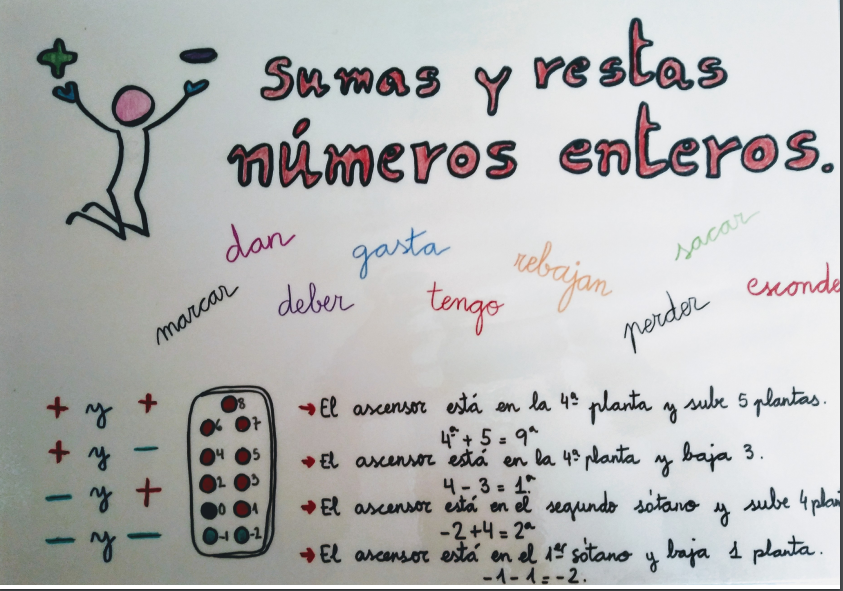 + -
Sumas y restas
números enteros.
dan gasta rebajan sacar
marcar deber tengo perder esconde
+ y +
+ y -
- y +
- y -
8
6 7
4 5
2 3
0 1
-1 -2
→ El ascensor está en la 4ª planta y sube 5 plantas.
4ª + 5 = 9ª
→ El ascensor está en la 4ª planta y baja 3.
4 - 3 = 1ª
→ El ascensor está en el segundo sótano y sube 4 plan
-2 + 4 = 2ª
→ El ascensor está en el 1er sótano y baja 1 planta.
-1 - 1 = -2.